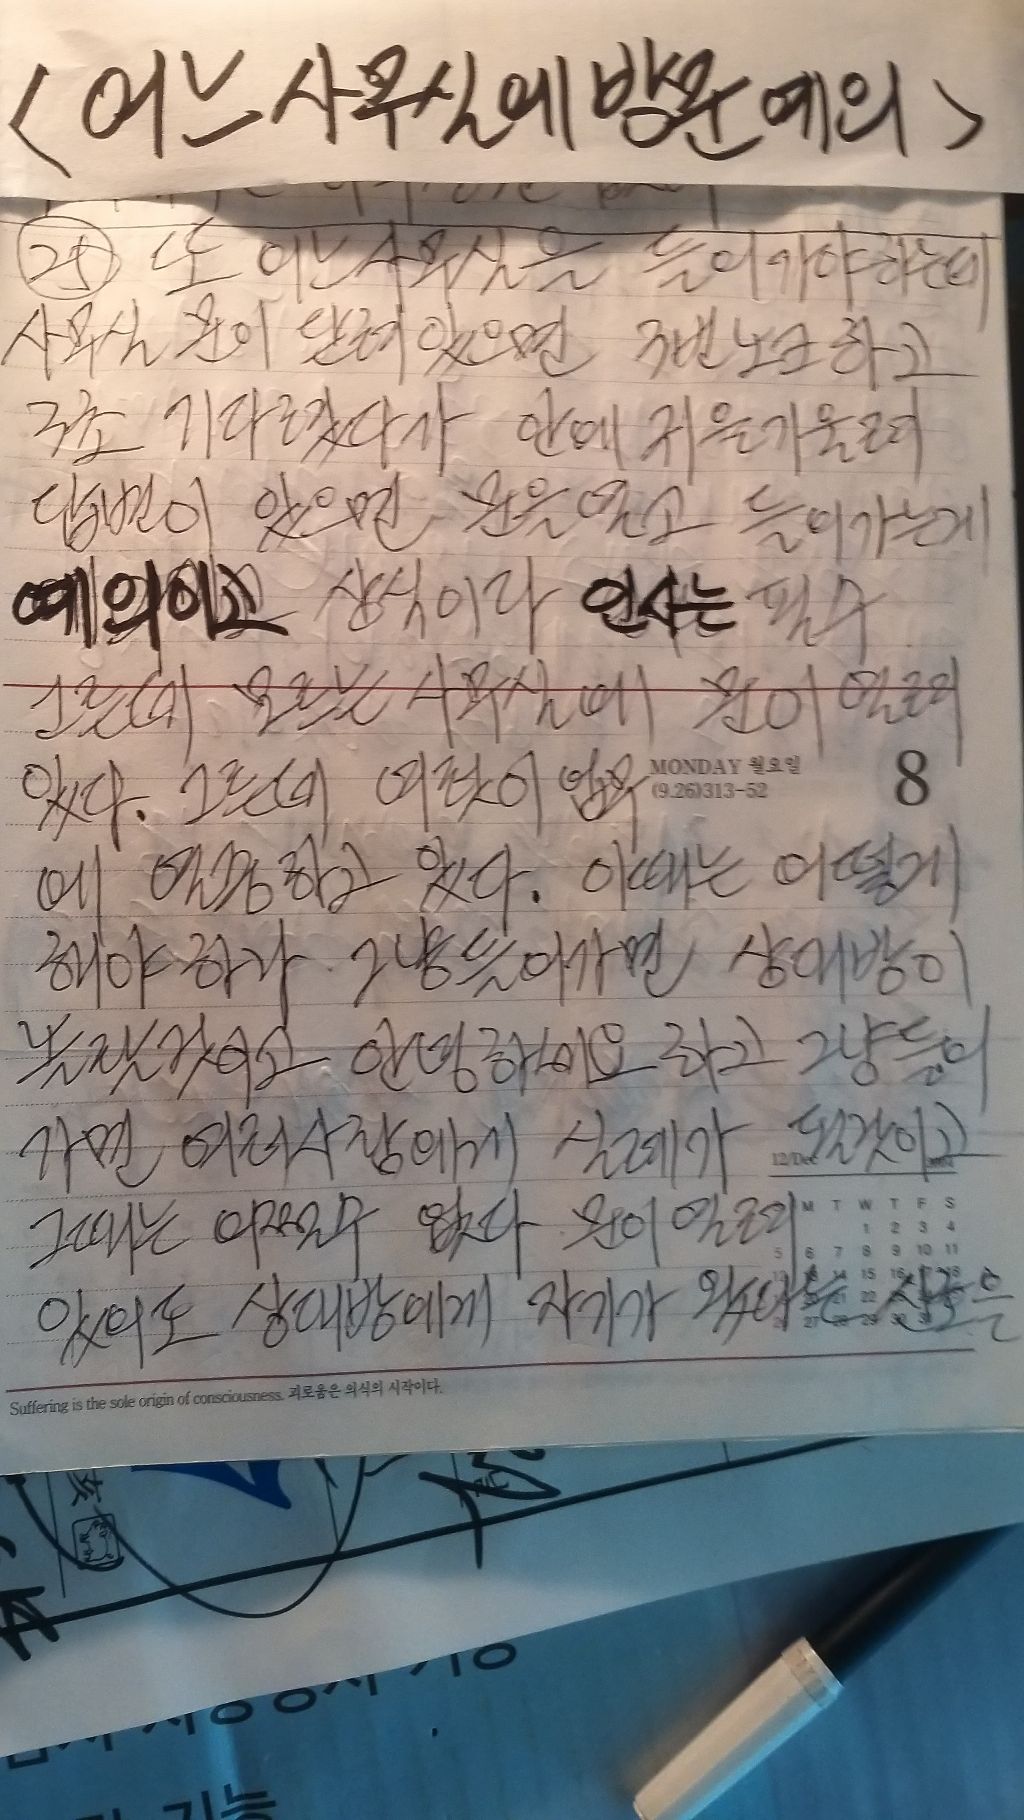 <어느 사무실에 방문 예의>
25 또 어느 사무실을 들어가야 하는데
사무실 문이 닫혀 있으면 3번 노크 하고
3초 기다렸다가 안에 귀을 기울려
답변이 있으면 문을 열고 들어가는게
예의이고 상식이라 인사는 필수
그런데 모르는 사무실에 문이 열려
있다. 그런데 여럿이 업무
MONDAY 월요일
(9.26)313-52
8
에 열중하고 있다. 이때는 어떻게
해야 하나 그냥 들어가면 상대방이
안녕하세요 하고 그냥 들어
가면 여러사람에게 실례가 될것이고
12/Dec
그때는 어쩔수 없다 문이 열려
M T W T F S
1 2 3 4
5 6 7 8 9 10 11
있어도 상대방에게 자기가 왔다는 신호을
Suffering is the sole origin of consciousness. 괴로움은 의식의 시작이다.
기능